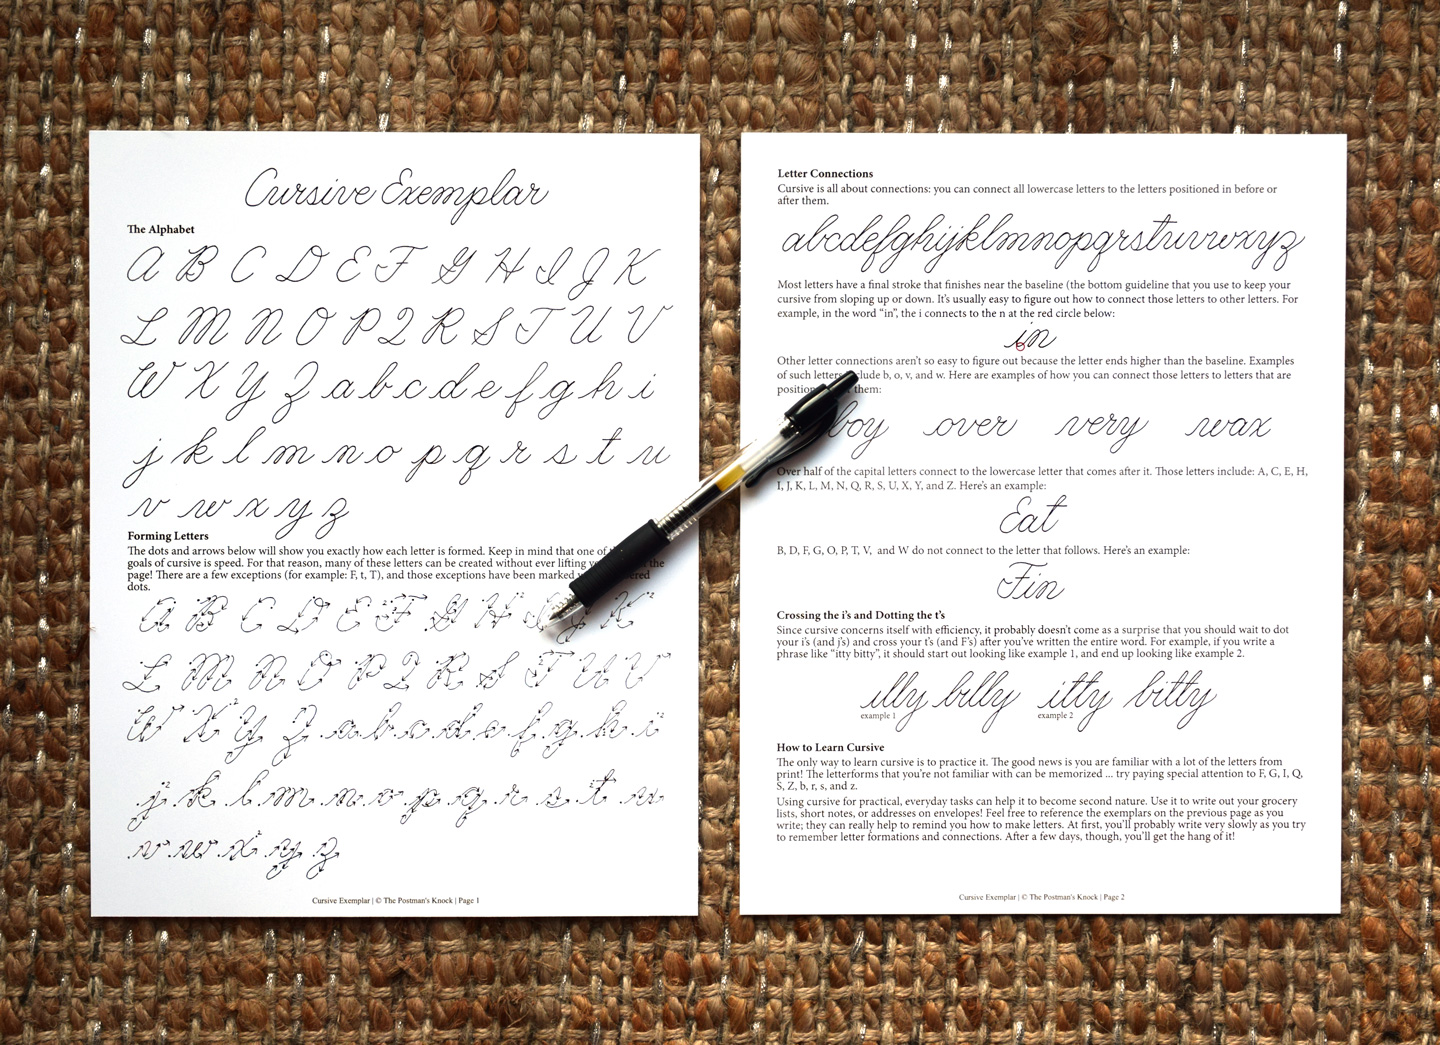 Cursive Exemplar
The Alphabet
A B C D E F G H I J K
L M N O P Q R S T U V
W X Y Z a b c d e f g h i
j k l m n o p q r s t u
v w x y z
Forming Letters
The dots and arrows below will show you exactly how each letter is formed. Keep in mind that one of the
goals of cursive is speed. For that reason, many of these letters can be created without ever lifting the
page! There are a few exceptions (for example: F, t, T), and those exceptions have been marked
dots.
A B C D E F G H I J K
L M N O P Q R S T U V
W X Y Z a b c d e f g h i
j k l m n o p q r s t u
v w x y z
Cursive Exemplar | © The Postman's Knock | Page 1
Letter Connections
Cursive is all about connections: you can connect all lowercase letters to the letters positioned in before or
after them.
abcdefghijklmnopqrstuvwxyz
Most letters have a final stroke that finishes near the baseline (the bottom guideline that you use to keep your
cursive from sloping up or down. It's usually easy to figure out how to connect those letters to other letters. For
example, in the word "in", the i connects to the n at the red circle below:
in
Other letter connections aren't so easy to figure out because the letter ends higher than the baseline. Examples
of such letters include b, o, v, and w. Here are examples of how you can connect those letters to letters that are
them:
boy over very wax
Over half of the capital letters connect to the lowercase letter that comes after it. Those letters include: A, C, E, H,
I, J, K, L, M, N, Q, R, S, U, X, Y, and Z. Here's an example:
Eat
B, D, F, G, O, P, T, V, and W do not connect to the letter that follows. Here's an example:
Fin
Crossing the i's and Dotting the t's
Since cursive concerns itself with efficiency, it probably doesn't come as a surprise that you should wait to dot
your i's (and j's) and cross your t's (and F's) after you've written the entire word. For example, if you write a
phrase like "itty bitty", it should start out looking like example 1, and end up looking like example 2.
illy billy itty bitty
example 1 example 2
How to Learn Cursive
The only way to learn cursive is to practice it. The good news is you are familiar with a lot of the letters from
print! The letterforms that you're not familiar with can be memorized ... try paying special attention to F, G, I, Q,
S, Z, b, r, s, and z.
Using cursive for practical, everyday tasks can help it to become second nature. Use it to write out your grocery
lists, short notes, or addresses on envelopes! Feel free to reference the exemplars on the previous page as you
write; they can really help to remind you how to make letters. At first, you'll probably write very slowly as you try
to remember letter formations and connections. After a few days, though, you'll get the hang of it!
Cursive Exemplar | © The Postman's Knock | Page 2